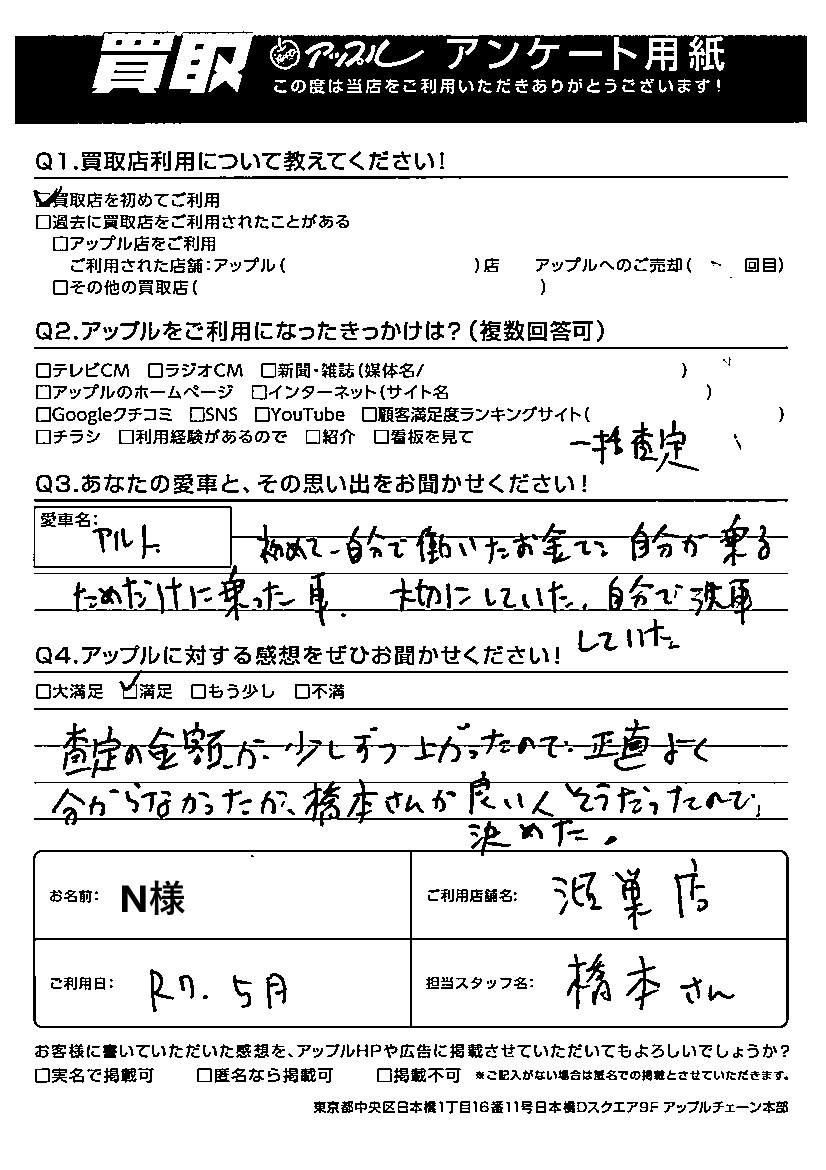 買取 アップル アンケート用紙
この度は当店をご利用いただきありがとうございます!
Q1.買取店利用について教えてください!
☑買取店を初めてご利用
□過去に買取店をご利用されたことがある
□アップル店をご利用
ご利用された店舗:アップル( )店 アップルへのご売却( 回目)
□その他の買取店( )
Q2.アップルをご利用になったきっかけは?(複数回答可)
□テレビCM □ラジオCM □新聞・雑誌(媒体名/ )
□アップルのホームページ □インターネット(サイト名 )
□Googleクチコミ □SNS □YouTube □顧客満足度ランキングサイト( )
□チラシ □利用経験があるので □紹介 □看板を見て 一括査定
Q3.あなたの愛車と、その思い出をお聞かせください!
愛車名:
アルト 初めて自分で働いたお金で、自分が乗る
ためだけに乗った車。大切にしていた。自分で洗車
していた
Q4.アップルに対する感想をぜひお聞かせください!
□大満足 ☑満足 □もう少し □不満
査定の金額が、少しずつ上がったので、正直よく
分からなかったが、橋本さんが良い人そうだったので、
決めた。
お名前: N様 ご利用店舗名: 鴻巣店
ご利用日: R7.5月 担当スタッフ名: 橋本さん
お客様に書いていただいた感想を、アップルHPや広告に掲載させていただいてもよろしいでしょうか?
□実名で掲載可 □匿名なら掲載可 □掲載不可 ※ご記入がない場合は匿名での掲載とさせていただきます。
東京都中央区日本橋1丁目16番11号日本橋Dスクエア9F アップルチェーン本部